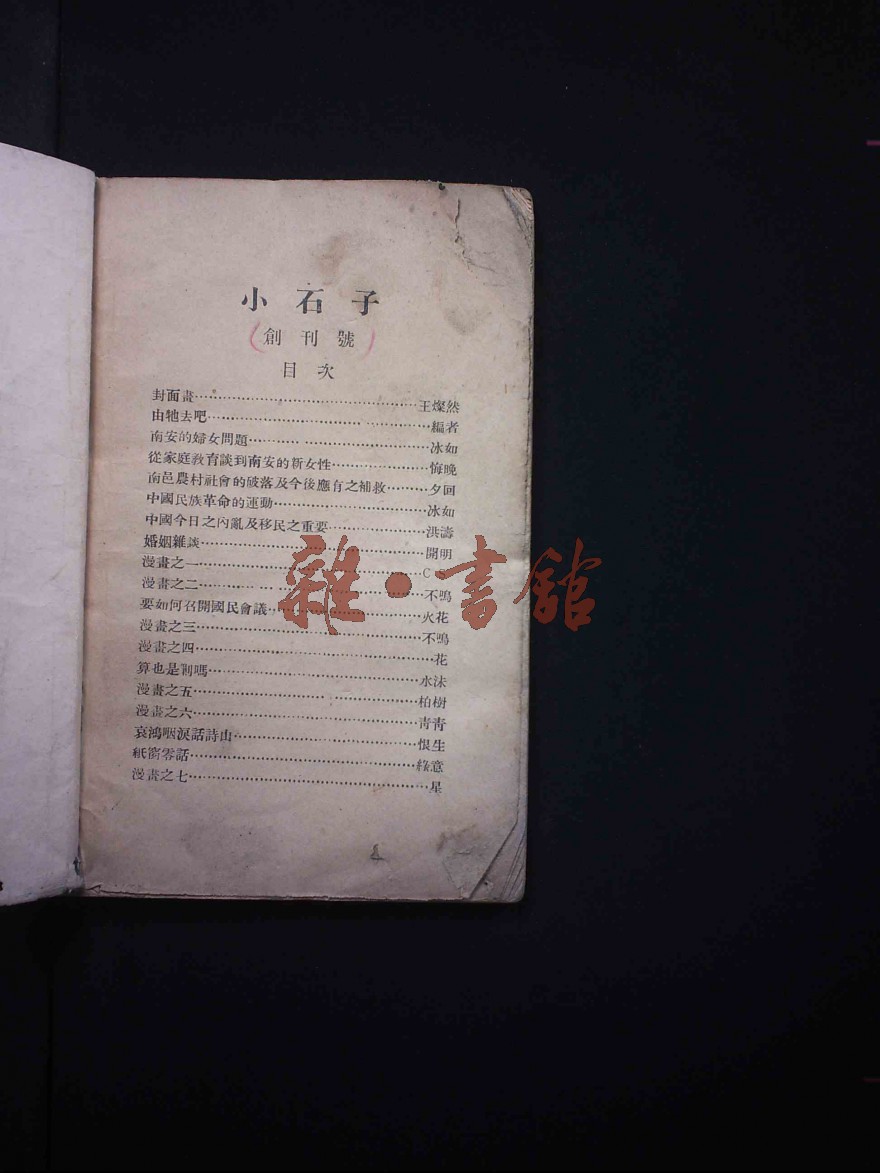 小石子
(創刊號)
目次
封面畫……王燦然
由牠去吧……編者
南安的婦女問題……冰如
從家庭教育談到南安的新女性……悔晚
南邑農村社會的破落及今後應有之補救……夕回
中國民族革命的運動……冰如
中國今日之內亂及移民之重要……洪濤
婚姻雜談……開明
漫畫之一……C
漫畫之二……不鳴
要如何召開國民會議……火花
漫畫之三……不鳴
漫畫之四……花
算也是制嗎……水沫
漫畫之五……柏樹
漫畫之六……靑靑
哀鴻咽淚話詩山……恨生
紙窗零話……綠意
漫畫之七……星
雜·書館